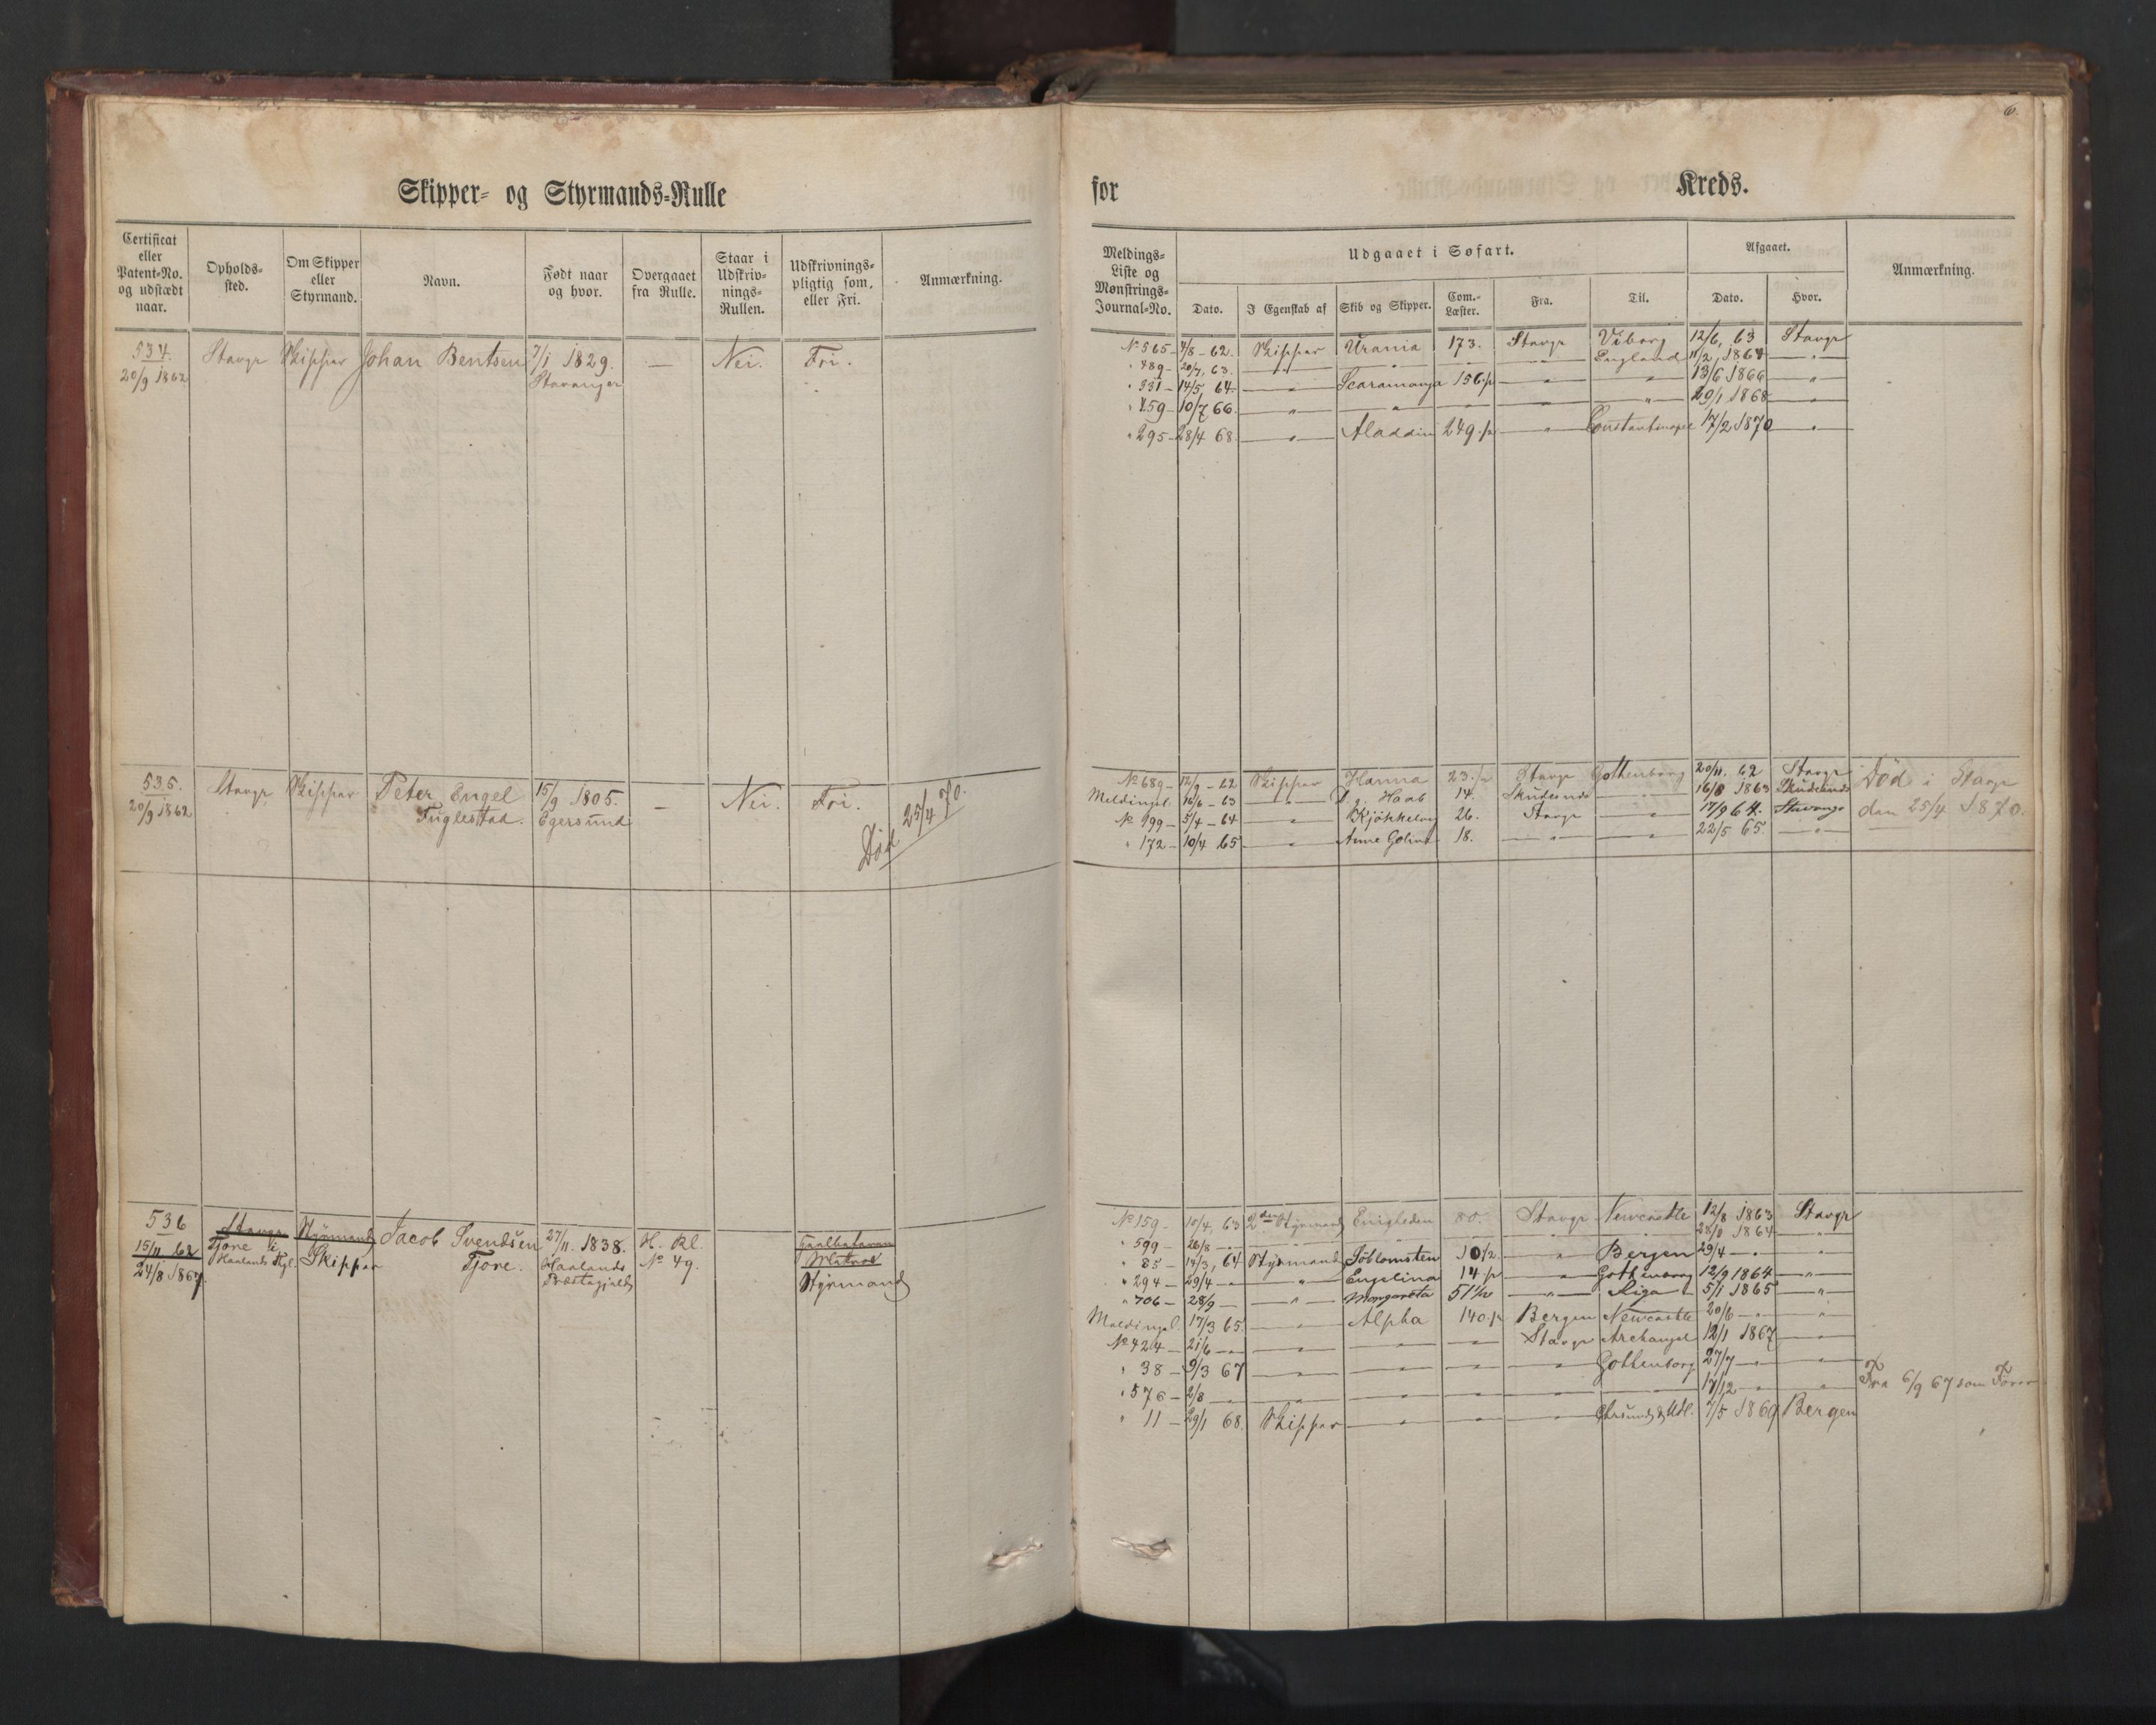 6.
Skipper- og Styrmands-Rulle for Kreds.
Certificat eller Patent-No. og udstædt naar. Opholds-sted. Om Skipper eller Styrmand. Navn. Født naar og hvor. Overgaaet fra Rulle. Staar i Udskriv-nings-Rullen. Udskrivnings-pligtig som, eller Fri. Anmærkning.
Meldings-Liste og Mønstrings-Journal-No. Udgaaet i Søfart. Afgaaet. Anmærkning.
Dato. I Egenskab af Skib og Skipper. Com.-Læster. Fra. Til. Dato. Hvor.
534. Stavgr Skipper Johan Bentsen 7/1 1829. — Nei. Fri.
20/9 1862 Stavanger
No 565 - 4/8 - 62. Skipper Urania 173. Stavgr Viborg 12/6, 63 Stavgr
" 489 - 20/7, 63. " " " England 11/2, 1864 "
" 331 - 14/5 64. " Scaramanga 156 " " 13/6 1866 "
" 459 - 10/7 66. " " " 20/1 1868 "
" 295 - 28/4 68 " Aladdin 249 " Constantinopel 17/2 1870 "
535. Stavgr Skipper Peter Engel 15/9 1805. — Nei. Fri.
20/9 1862 Fuglestad. Egersund
Død 25/4 70.
No 689 - 12/9 - 62 Skipper Hanna 23 Stavgr Gothenborg 20/11. 62 Stavgr Død i Stavgr
Meldingsl. 16/6 - 63 " Haab 14. Skudesnds " 16/8 1863 Skudesnds den 25/4 1870.
No 199 - 5/4 - 64 " 26. Stavgr " 17/9 64. Stavanger
" 172 - 10/4 65 " Anne 18. " " 22/5 65. "
536 Stavgr Styrmand Jacob Svendsen 27/11. 1838. H. Rl. Matros
15/11 62 Tjore i Skipper Tjore. Haalands No 49. Styrmand
24/8 1867. Haalands Pgl. Præstegjeld
No 159 - 10/4, 63 2den Styrmand Enigheden 80. Stavgr Newcastle 12/8 1863 Stavgr
" 599 - 26/8 - " 1864 "
" 85 - 14/3, 64 Styrmand Søblomsten 10 1/2 " Bergen 29/4 - " "
" 294 - 29/4 - " " Engelina 14 " Gothenborg 12/9 1864 "
" 706 - 28/9 - " Margareta 51 1/2 " Riga 5/1 1865 "
Meldingsl. 17/3 65. " Alpha 140 Bergen Newcastle 20/6 - " "
No 424 - 21/6 - " " " Stavgr Archangel 12/1 1867 "
" 38 - 9/3 67 " " " " Gothenborg 27/7 - " "
" 576 - 2/8 - " " " 17/12 - " " Fra 6/9 67 som Fører
" 11 - 29/1 68. Skipper " " " Chrsund & Udl. 7/5 1869 Bergen